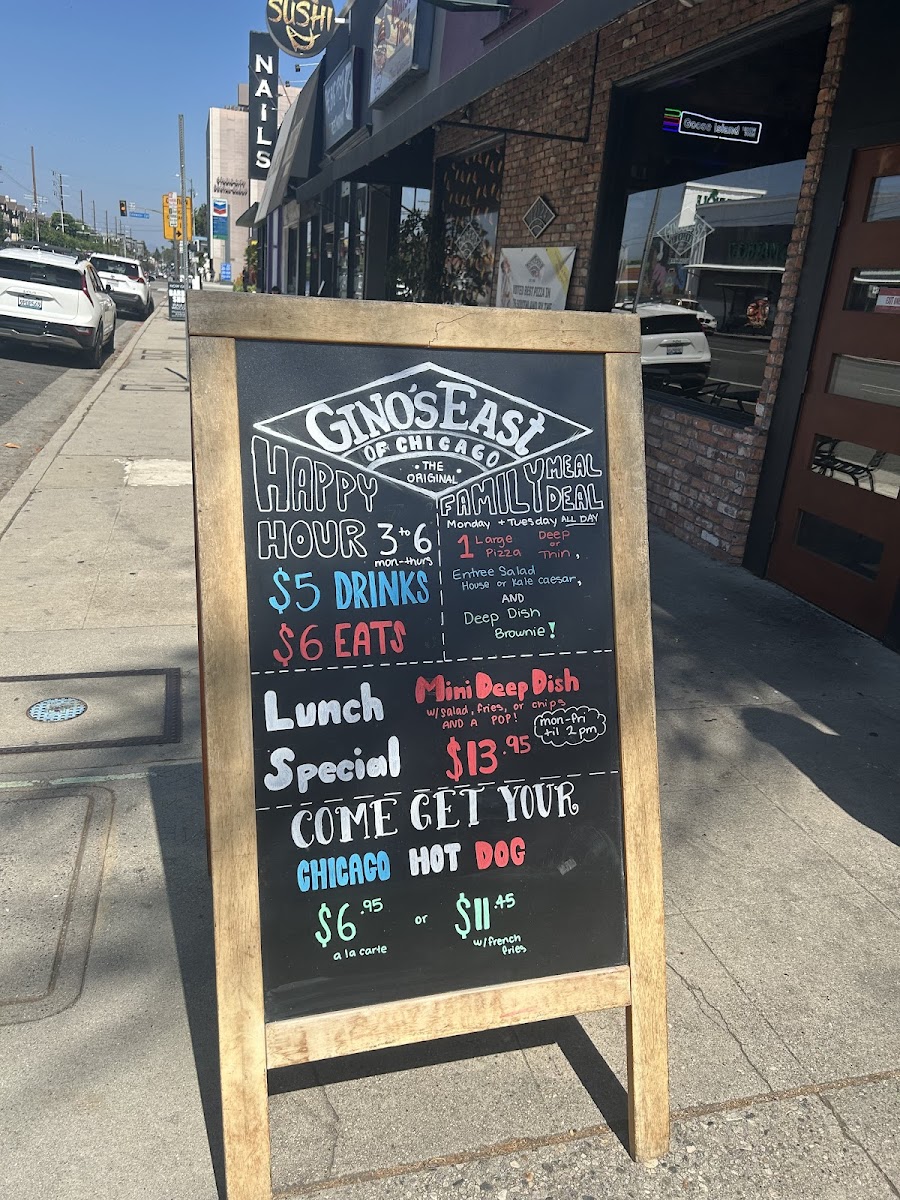 SUSHI
NAILS
Goose Island
GINO'S EAST
OF CHICAGO
• THE •
ORIGINAL
HAPPY
HOUR 3 to 6
mon-thurs
$5 DRINKS
$6 EATS
FAMILY MEAL
DEAL
Monday + Tuesday ALL DAY
1 Large Pizza Deep or Thin,
Entree Salad
House or Kale caesar,
AND
Deep Dish
Brownie!
Lunch
Special
Mini Deep Dish
w/salad, fries, or chips
AND A POP!
mon-fri
'til 2pm
$13.95
COME GET YOUR
CHICAGO HOT DOG
$6.95 or $11.45
a la carte
w/french
fries